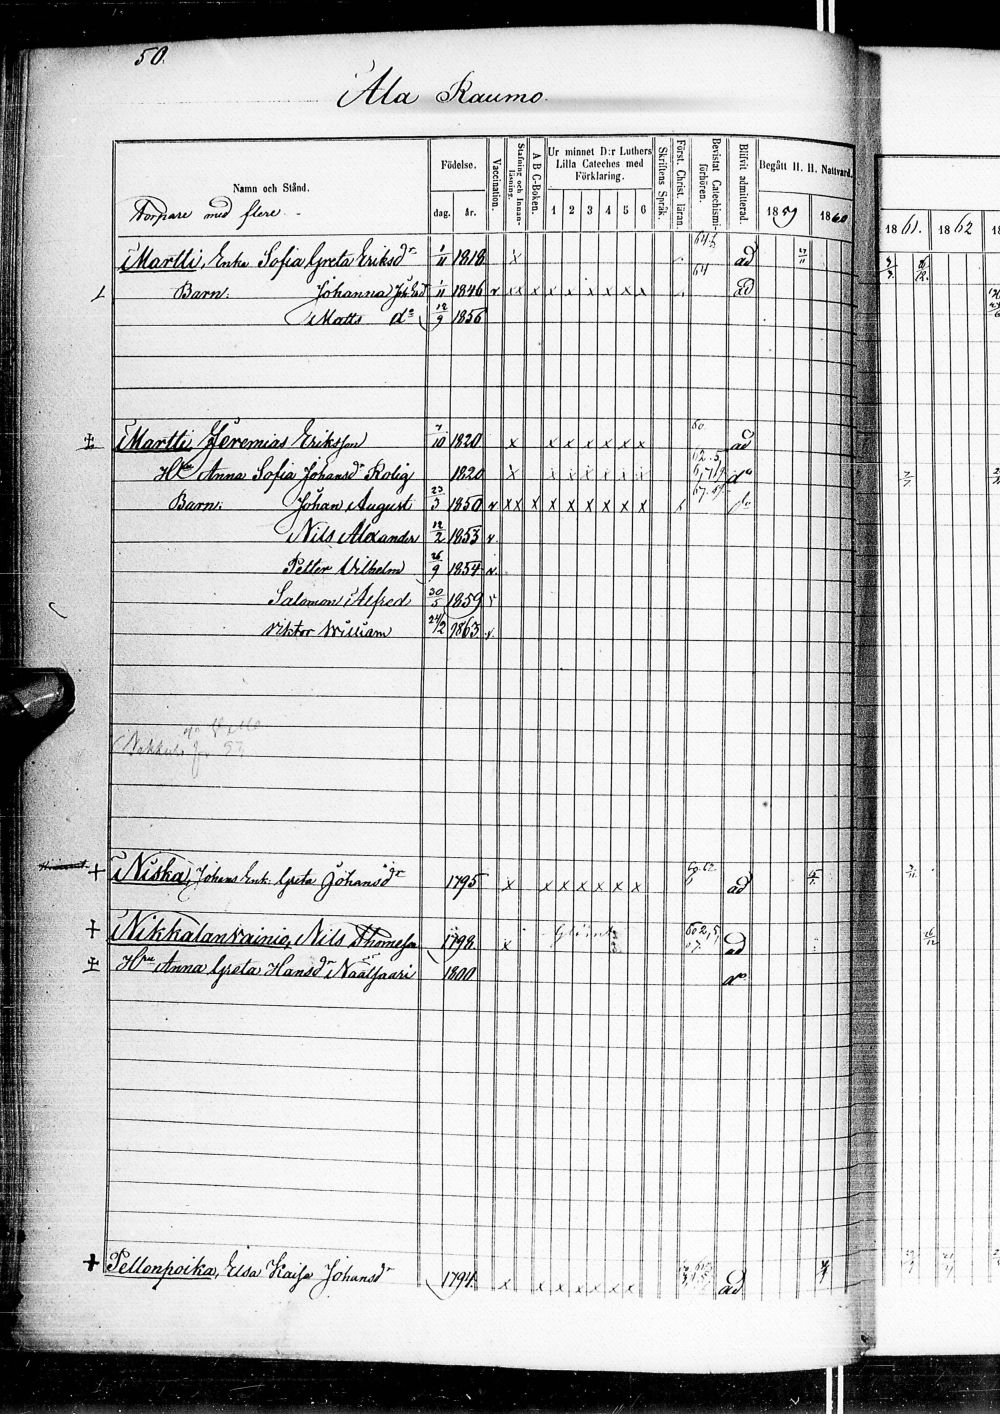 50.
Ala Raumo.
Namn och Stånd.
Torpare med flere
Födelse.
dag. år.
Vaccination.
Stafning och Innanläsning.
A B C-Boken.
Ur minnet D:r Luthers Lilla Cateches med Förklaring.
1 2 3 4 5 6
Skriftens Språk.
Först. Christ. läran.
Bevistat Catechismiförhören.
Blifvit admitterad.
Begått H. H. Nattvard.
1859 1860
1861. 1862
Martti, Enka Sofia Greta Eriksdr 1/11 1818 x ad
Barn: Johanna 1/11 1846 v x x x x x x x x x ad
Matts do 12/9 1856
Martti, Jeremias Eriksson 7/10 1820 x x x x x x x ad
Hru Anna Sofia Johansdr Rolig 1820 x x x x x x x do
Barn: Johan August 23/3 1850 v x x x x x x x x x
Nils Alexander 12/2 1853 v
Petter Wilhelm 26/9 1854 v.
Salomon Alfred 30/5 1859 v
Viktor William 24/2 1863 v.
Niska, Johans Enk. Greta Johansdr 1795 x x x x x x x ad
Nikkalanvainio, Nils Thomsson 1798 x ad
Hru Anna Greta Hansdr Naalisaari 1800 do
Pellonpoika, Elsa Kaisa Johansdr 1794 x x x x x x x ad